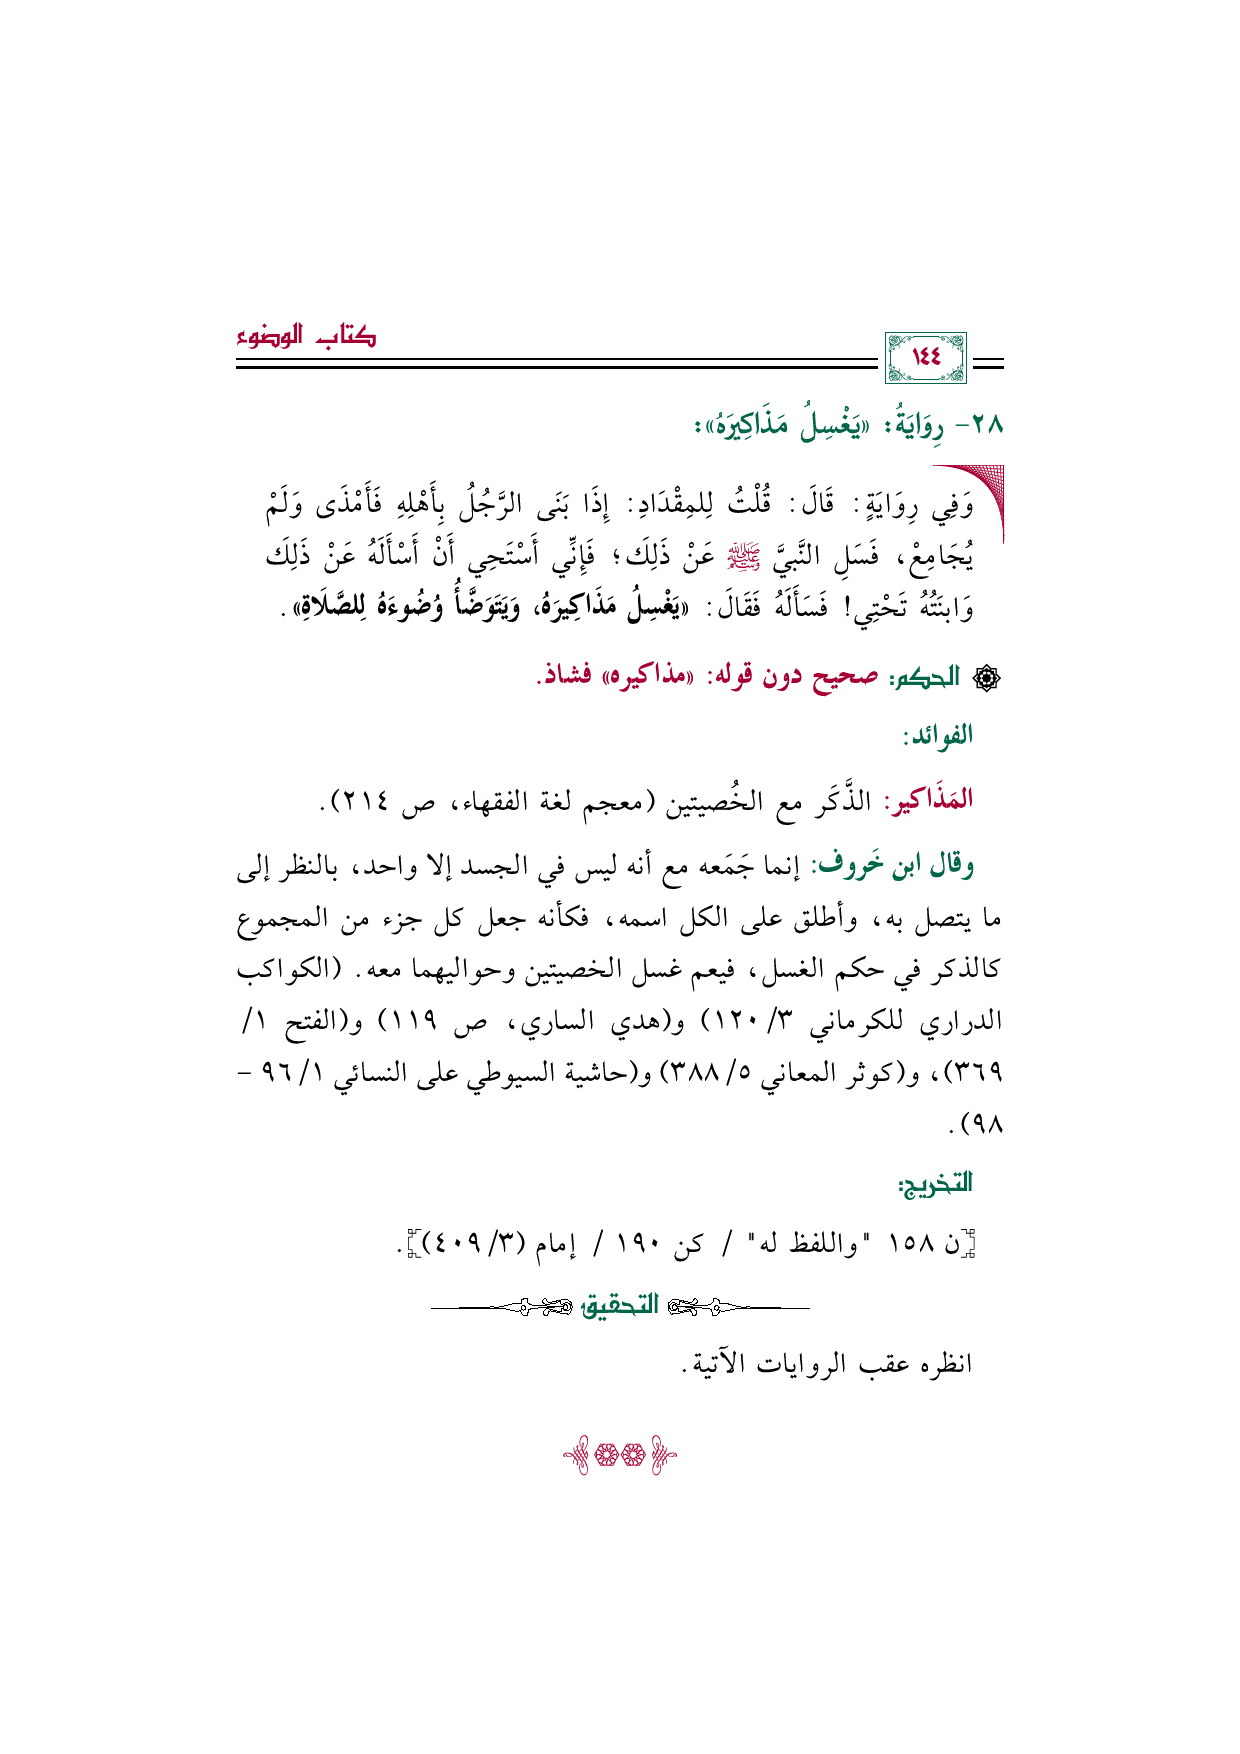 كتاب الوضوء
١٤٤
٢٨- رِوَايَةُ: «يَغْسِلُ مَذَاكِيرَهُ»:
وَفِي رِوَايَةٍ: قَالَ: قُلْتُ لِلمِقْدَادِ: إِذَا بَنَى الرَّجُلُ بِأَهْلِهِ فَأَمْذَى وَلَمْ
يُجَامِعْ، فَسَلِ النَّبِيَّ ﷺ عَنْ ذَلِكَ؛ فَإِنِّي أَسْتَحِي أَنْ أَسْأَلَهُ عَنْ ذَلِكَ
وَابنَتُهُ تَحْتِي! فَسَأَلَهُ فَقَالَ: «يَغْسِلُ مَذَاكِيرَهُ، وَيَتَوَضَّأُ وُضُوءَهُ لِلصَّلَاةِ».
الحكم: صحيح دون قوله: «مذاكيره» فشاذ.
الفوائد:
المَذَاكير: الذَّكَر مع الخُصيتين (معجم لغة الفقهاء، ص ٢١٤).
وقال ابن خَروف: إنما جَمَعه مع أنه ليس في الجسد إلا واحد، بالنظر إلى
ما يتصل به، وأطلق على الكل اسمه، فكأنه جعل كل جزء من المجموع
كالذكر في حكم الغسل، فيعم غسل الخصيتين وحواليهما معه. (الكواكب
الدراري للكرماني ٣/ ١٢٠) و(هدي الساري، ص ١١٩) و(الفتح ١/
٣٦٩)، و(كوثر المعاني ٥/ ٣٨٨) و(حاشية السيوطي على النسائي ١/ ٩٦ -
٩٨).
التخريج:
[ن ١٥٨ "واللفظ له" / كن ١٩٠ / إمام (٣/ ٤٠٩)].
التحقيق
انظره عقب الروايات الآتية.